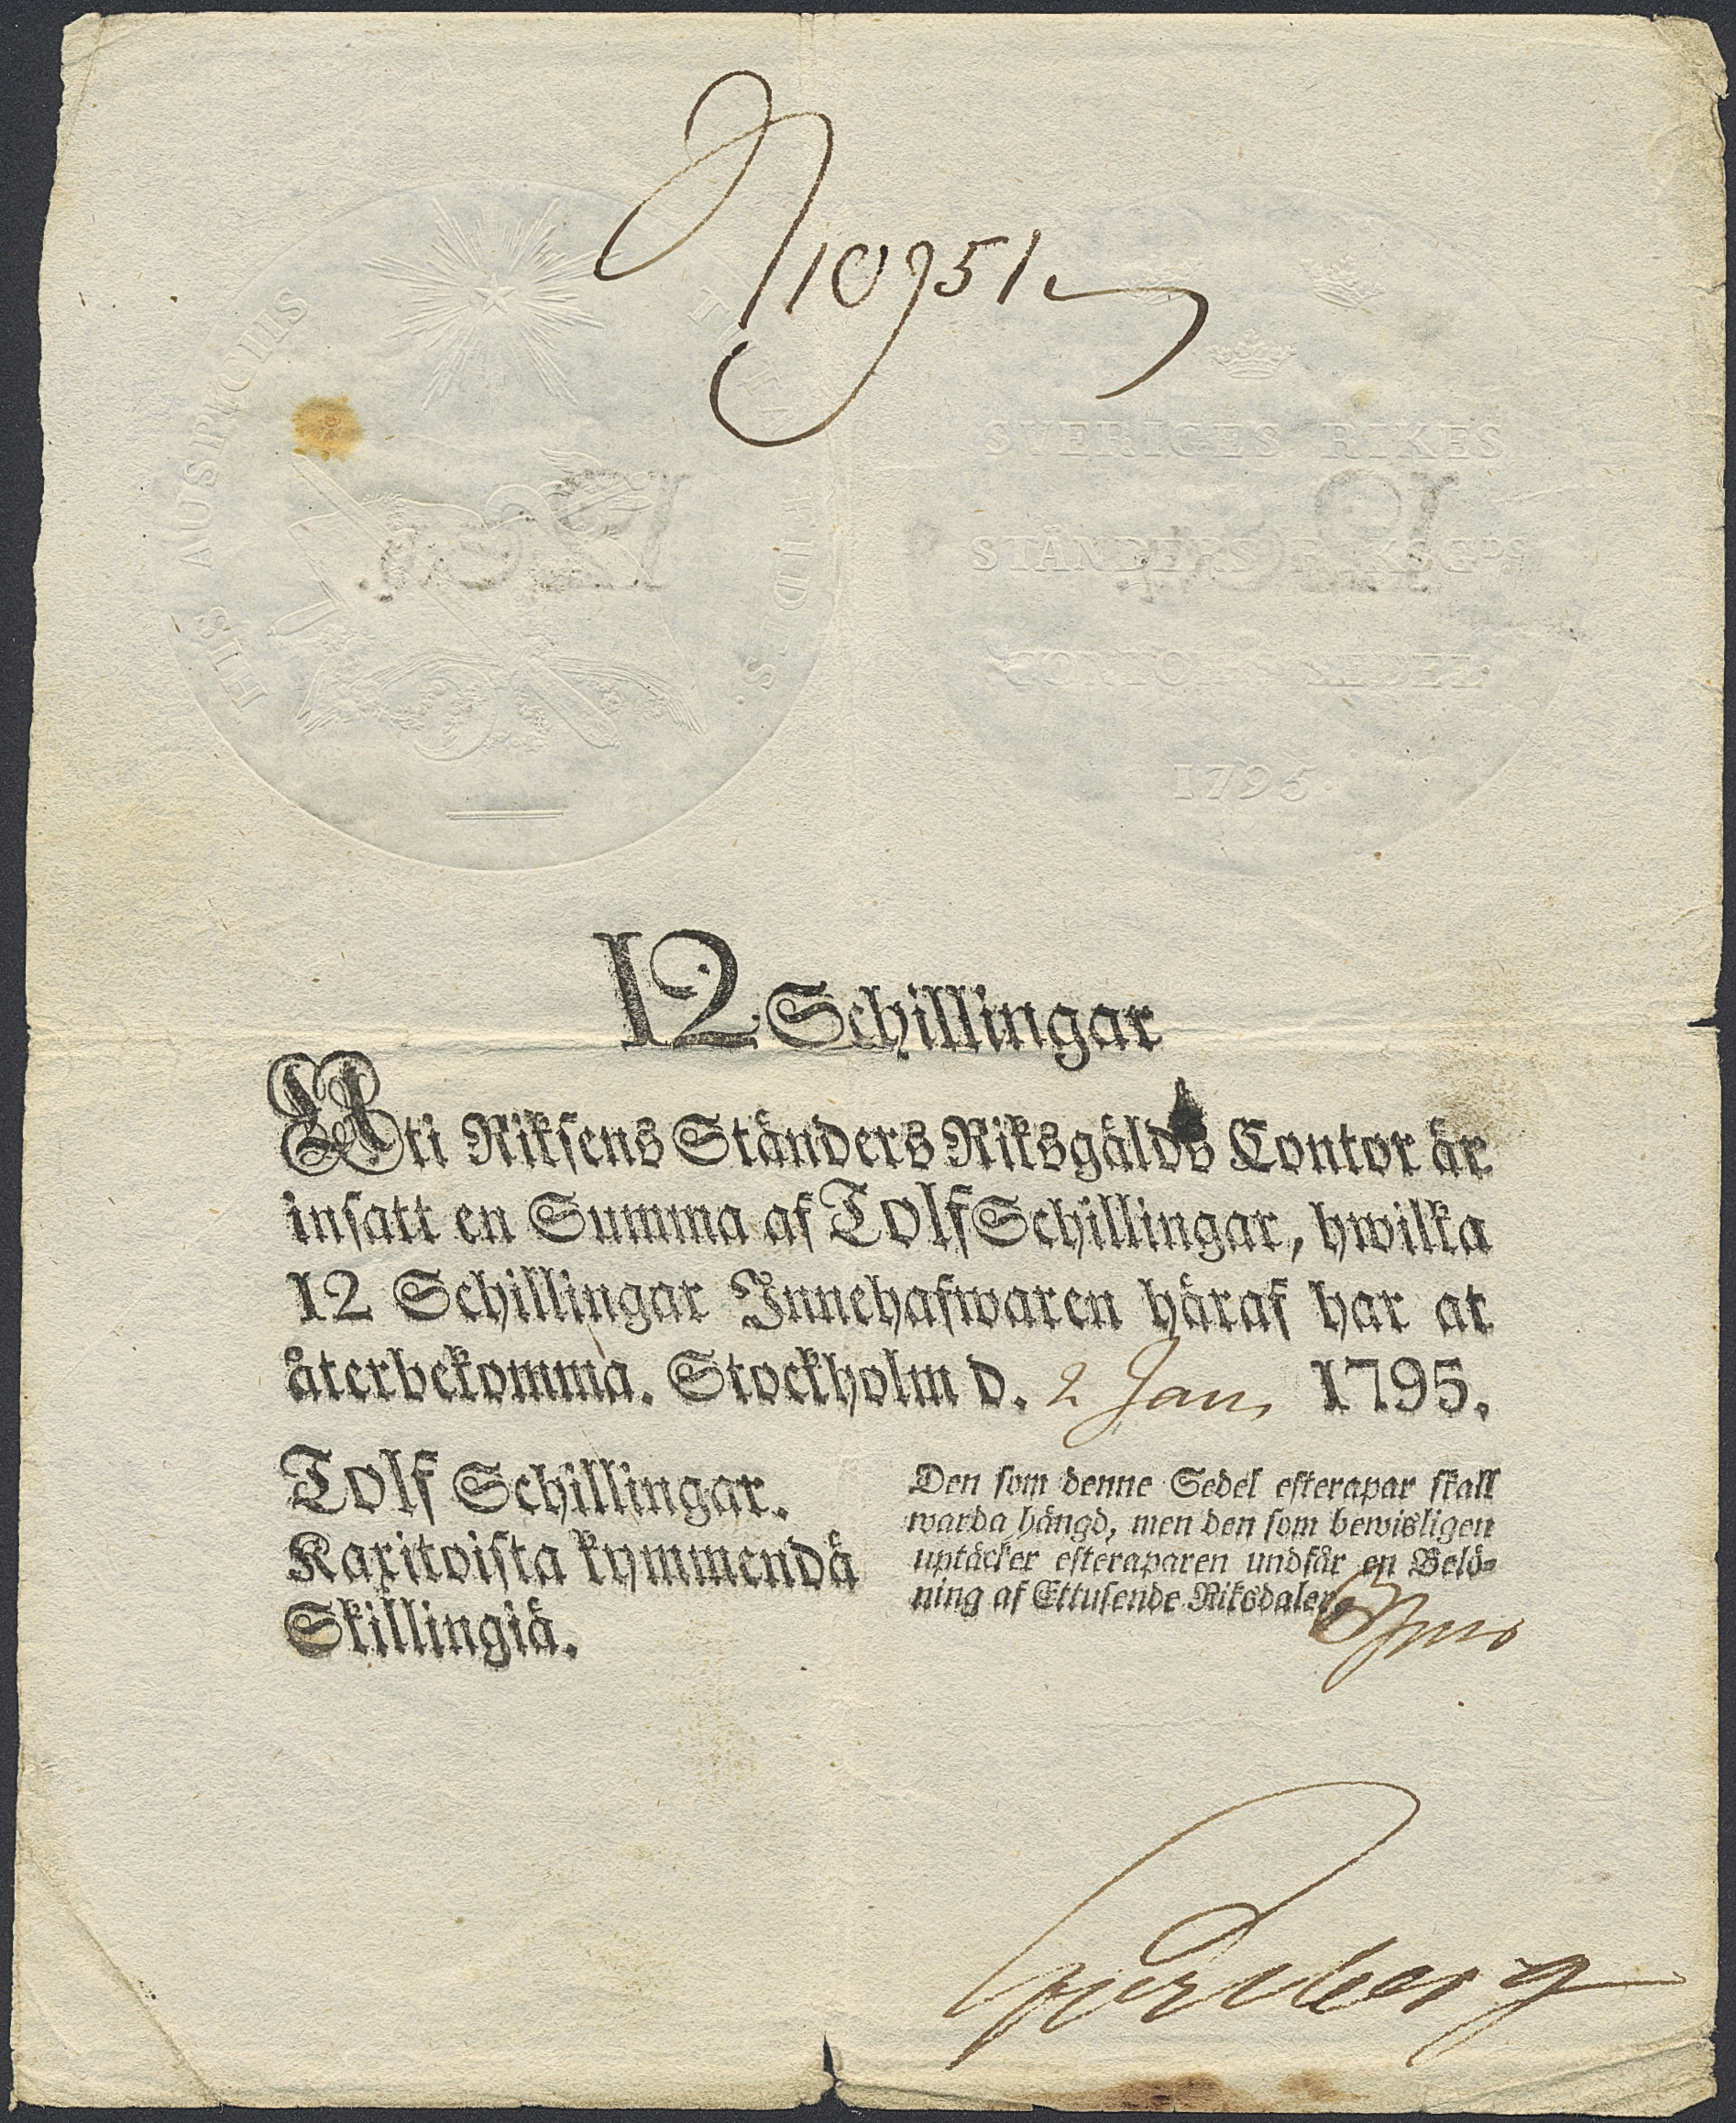 N 10951
HIS AUSPICIIS TUTA FIDES.
SVERIGES RIKES
STÄNDERS RIKSGDS
CONTOIRS SEDEL.
1795.
12 Schillingar
Uti Riksens Ständers Riksgälds Contor är
insatt en Summa af Tolf Schillingar, hwilka
12 Schillingar Innehafwaren häraf har at
återbekomma. Stockholm d. 2 Jan, 1795.
Tolf Schillingar.
Kaxitoista kymmendä
Skillingiä.
Den som denne Sedel efterapar skall
warda hängd, men den som bewisligen
uptäcker efteraparen undfår en Belö-
ning af Ettusende Riksdaler.